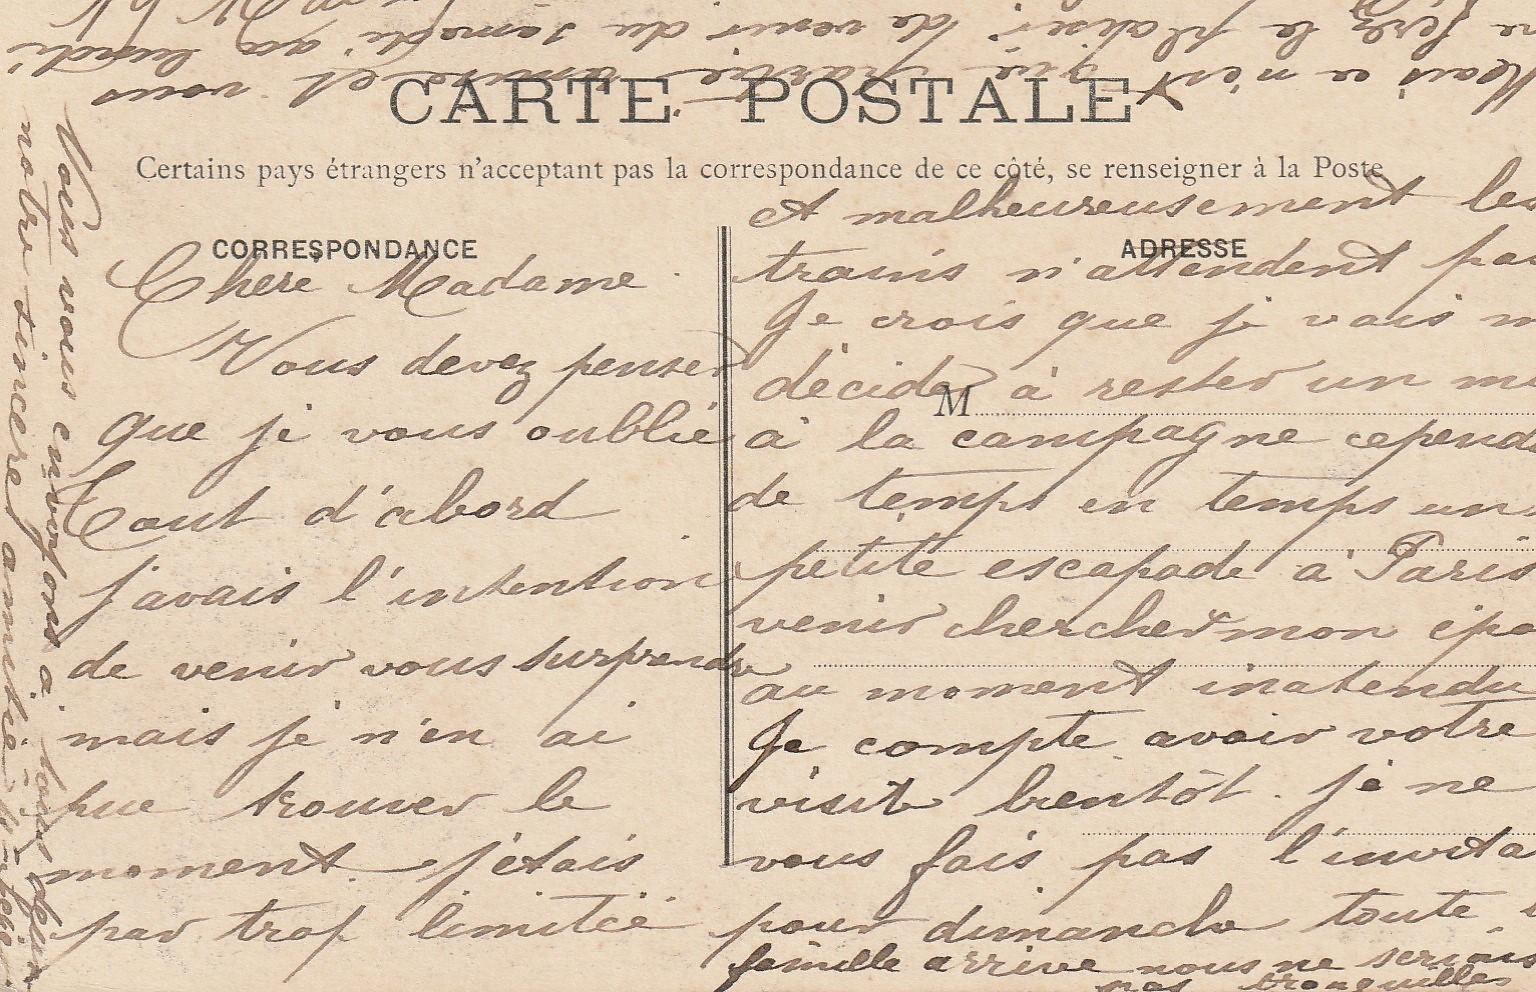 CARTE POSTALE
Certains pays étrangers n'acceptant pas la correspondance de ce côté, se renseigner à la Poste
CORRESPONDANCE
Chere Madame
Vous devez penser
que je vous oublie
Tout d'abord
j'avais l'intention
de venir vous surprendre
mais je n'en ai
pue trouver le
moment j'étais
par trop limitée
ADRESSE
M
et malheureusement les
trains n'attendent pas
Je crois que je vais
décider à rester un
à la campagne
de temps en temps
petite escapade à Paris
venir chercher mon
au moment inatendu
Je compte avoir votre
visite bientôt. je ne
vous fais pas
pour dimanche toute
famille arrive nous ne serions
pas tranquilles
Mais ce n'est que partie remise et vous
me ferez le plaisir de venir du samedi au lundi
Vous vous envoyons à tous deux
notre sincere amitié